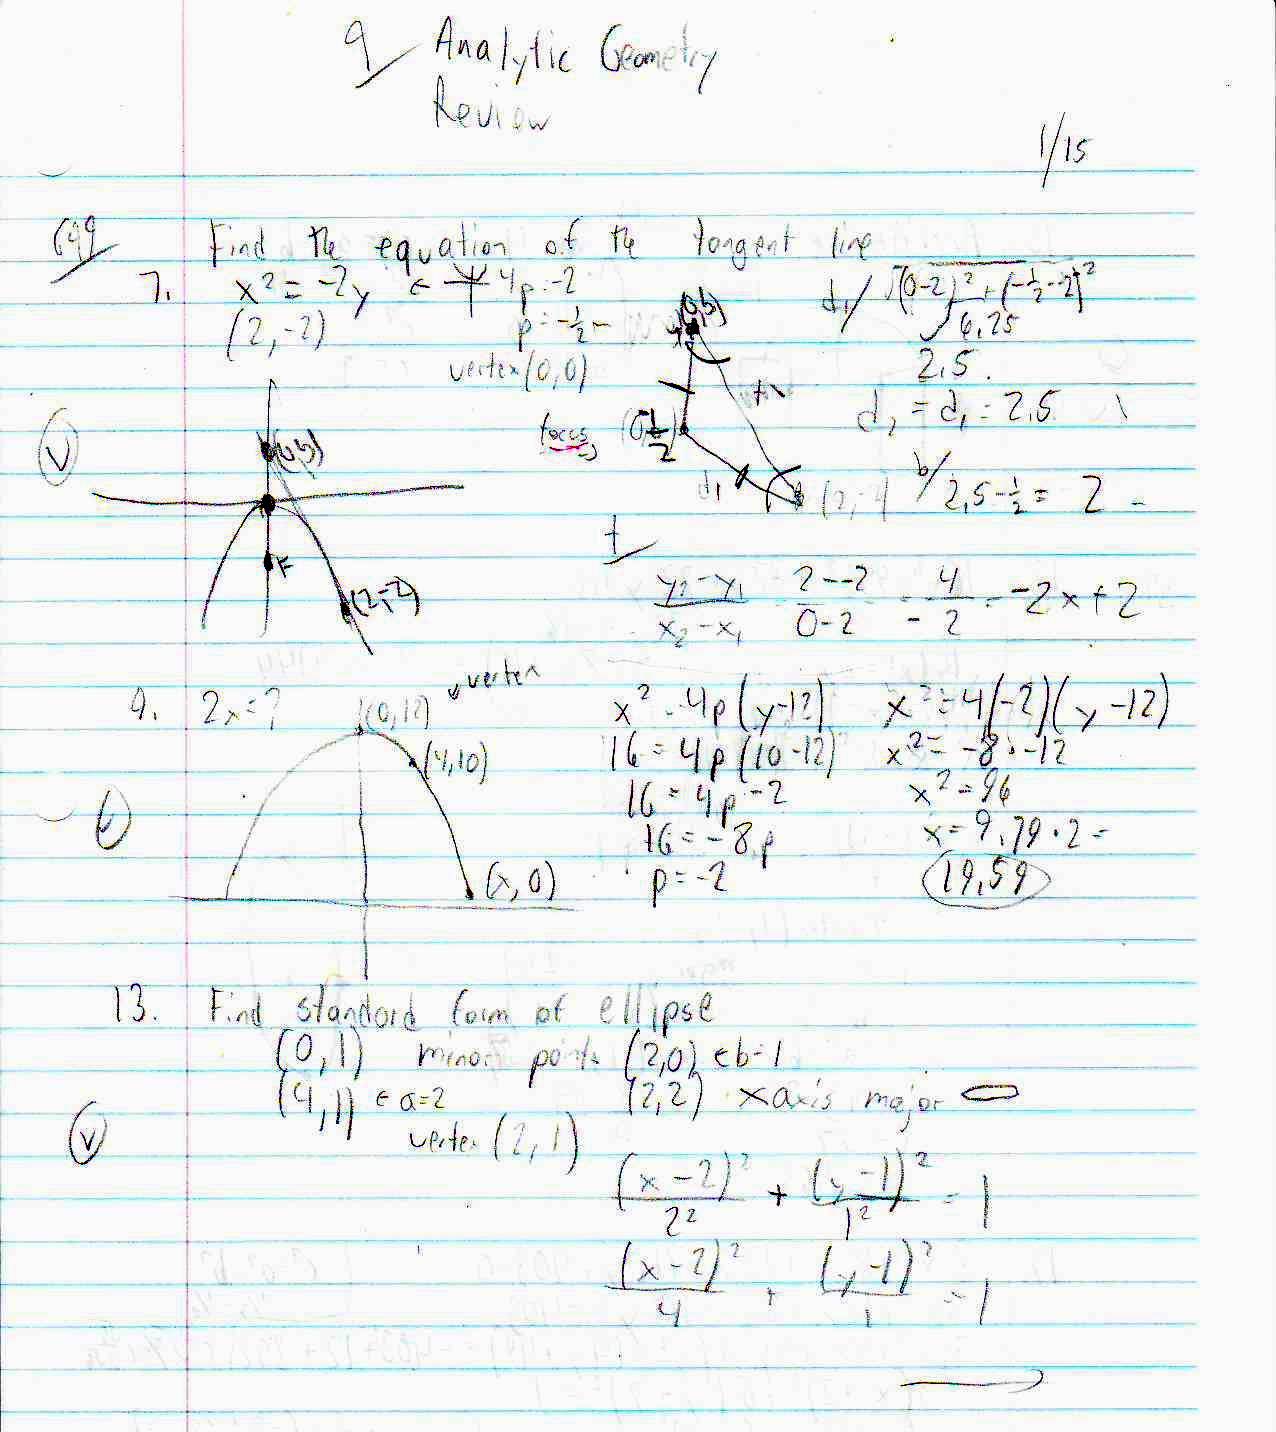 9 Analytic Geometry
Review
1/15
699 Find the equation of the tangent line
7. x² = -2y ∈ 4p = -2
(2, -2) p = -½
vertex (0,0)
(0,b)
d₁ √(0-2)² + (-½--2)²
√6.25
2.5
d₂ = d₁ = 2.5
focus
d₁ (2,-2) b/ 2.5 - ½ = 2
V
(0,b)
F
(2,-2)
t
y₂-y₁ / x₂-x₁ 2--2 / 0-2 = 4 / -2 = -2x+2
9. 2x=? (0,12) vertex
(4,10)
(x,0)
x² = 4p(y-12)
16 = 4p(10-12)
16 = 4p · -2
16 = -8p
p = -2
x² = 4(-2)(y-12)
x² = -8 · -12
x² = 96
x = 9.79 · 2 =
19.59
13. Find standard form of ellipse
(0,1) minor points (2,0) ∈ b=1
(4,1) ∈ a=2 (2,2) x axis major
V
vertex (2,1)
(x-2)² / 2² + (y-1)² / 1² = 1
(x-2)² / 4 + (y-1)² / 1 = 1